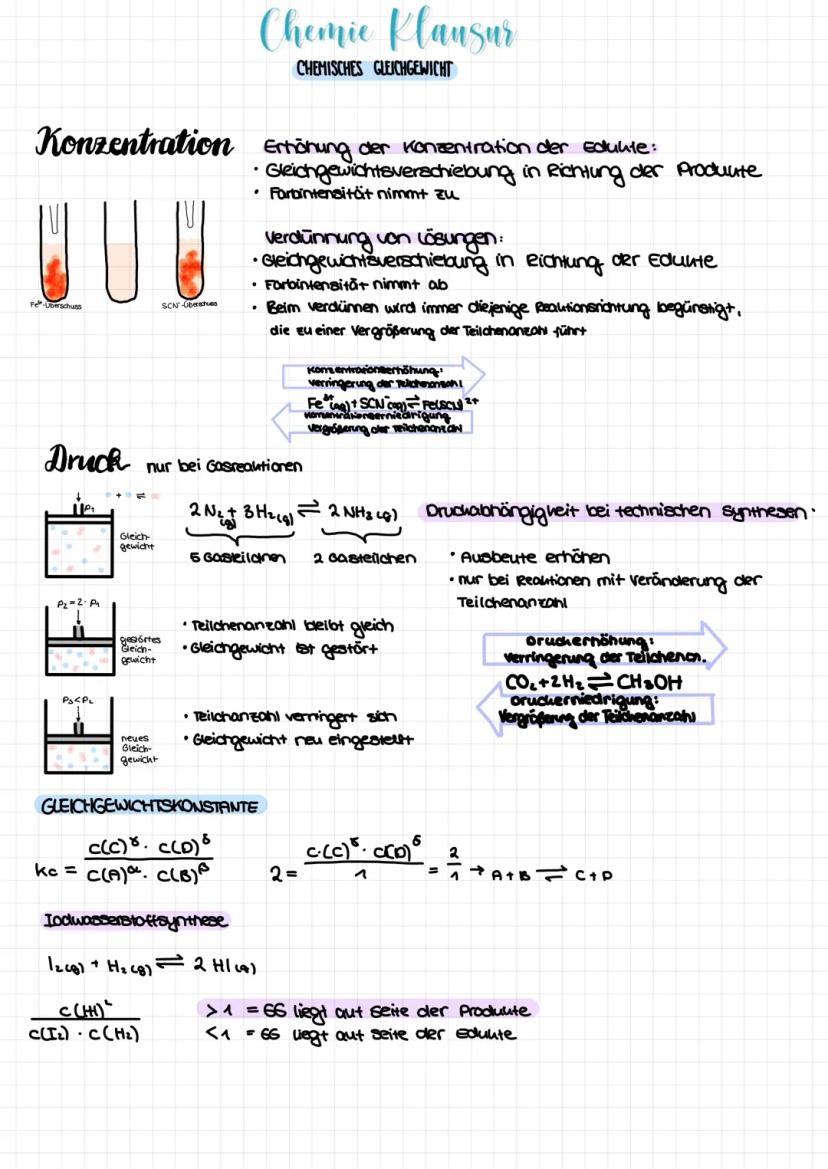 Chemie Klausur
CHEMISCHES GLEICHGEWICHT
Konzentration
Erhöhung der Konzentration der Edukte:
• Gleichgewichtsverschiebung in Richtung der Produkte
• Farbintensität nimmt zu
Verdünnung von Lösungen:
• Gleichgewichtsverschiebung in Richtung der Edukte
• Farbintensität nimmt ab
• Beim verdünnen wird immer diejenige Reaktionsrichtung begünstigt,
die zu einer Vergrößerung der Teilchenanzahl führt
Fe³⁺-Überschuss
SCN⁻-Überschuss
Konzentrationserhöhung:
Verringerung der Teilchenanzahl
Fe³⁺(aq) + SCN⁻(aq) ⇌ Fe(SCN)²⁺
Konzentrationserniedrigung
Vergrößerung der Teilchenanzahl
Druck nur bei Gasreaktionen
+ ⇌
p₁
Gleich-
gewicht
2 N₂(g) + 3 H₂(g) ⇌ 2 NH₃(g)
5 Gasteilchen 2 Gasteilchen
Druckabhängigkeit bei technischen Synthesen.
• Ausbeute erhöhen
• nur bei Reaktionen mit Veränderung der
Teilchenanzahl
p₂ = 2 · p₁
gestörtes
Gleich-
gewicht
• Teilchenanzahl bleibt gleich
• Gleichgewicht ist gestört
Druckerhöhung:
Verringerung der Teilchenan.
CO₂ + 2H₂ ⇌ CH₃OH
Druckerniedrigung:
Vergrößerung der Teilchenanzahl
p₃ < p₂
neues
Gleich-
gewicht
• Teilchanzahl verringert sich
• Gleichgewicht neu eingestellt
GLEICHGEWICHTSKONSTANTE
kc = c(C)^γ · c(D)^δ / c(A)^α · c(B)^β
2 = c·(C)^γ · c(D)^δ / 1 = 2/1 → A + B ⇌ C + D
Iodwasserstoffsynthese
I₂(g) + H₂(g) ⇌ 2 HI(g)
c(HI)² / c(I₂) · c(H₂)
> 1 = GG liegt auf Seite der Produkte
< 1 = GG liegt auf Seite der Edukte